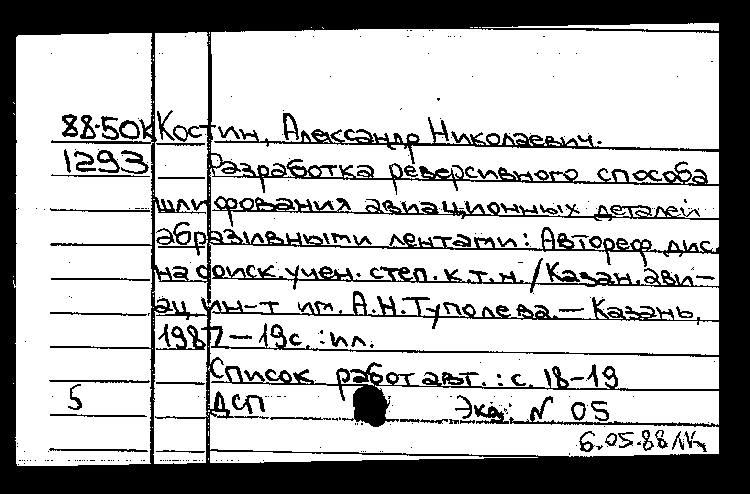 88-50к Костин, Александр Николаевич.
1293 Разработка реверсивного способа
шлифования авиационных деталей
абразивными лентами: Автореф. дис.
на соиск. учен. степ. к.т.н. / Казан. ави-
ац. ин-т им. А.Н. Туполева. — Казань,
1987 — 19с. : ил.
Список работ авт. : с. 18-19
5 ДСП Экз. N 05
6.05.88